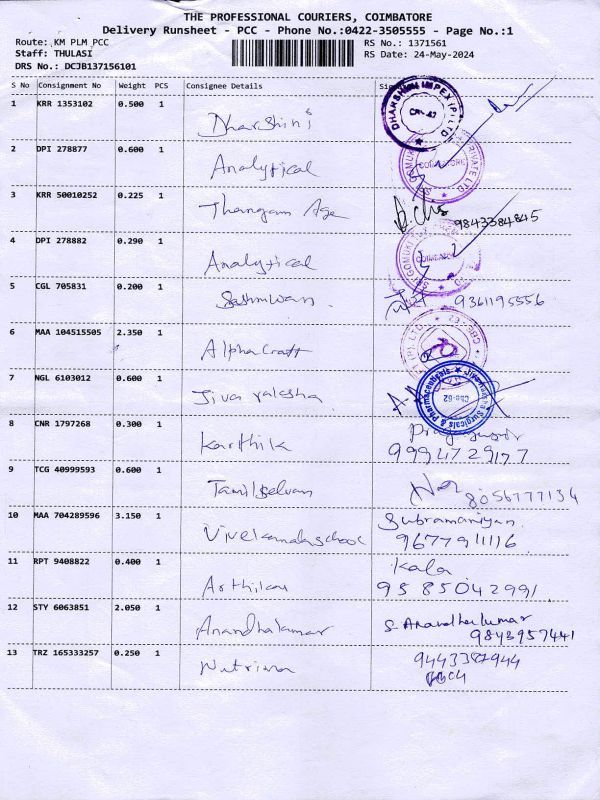 THE PROFESSIONAL COURIERS, COIMBATORE
Delivery Runsheet - PCC - Phone No.:0422-3505555 - Page No.:1
Route: KM PLM PCC
Staff: THULASI
DRS No.: DCJB137156101
RS No.: 1371561
RS Date: 24-May-2024
S No Consignment No Weight PCS Consignee Details
1 KRR 1353102 0.500 1 Dharshini DHARSHINI IMPEX (P) LTD
2 DPI 278877 0.600 1 Analytical COIMBATORE
3 KRR 50010252 0.225 1 Thangam Age 9843384845
4 DPI 278882 0.290 1 Analytical
5 CGL 705831 0.200 1 9361195556
6 MAA 104515505 2.350 1 Alphacraft
7 NGL 6103012 0.600 1 Surgicals & Pharmaceuticals Cbe-62
8 CNR 1797268 0.300 1 Karthik 9994729177
9 TCG 40999593 0.600 1 Tamilselvan 8056777134
10 MAA 704289596 3.150 1 Vivekanandaschool Subramaniyan
9677911116
11 RPT 9408822 0.400 1 Kala
9585042991
12 STY 6063851 2.050 1 Anandhakumar S. Anandhakumar
9843957441
13 TRZ 165333257 0.250 1 Nutriwa